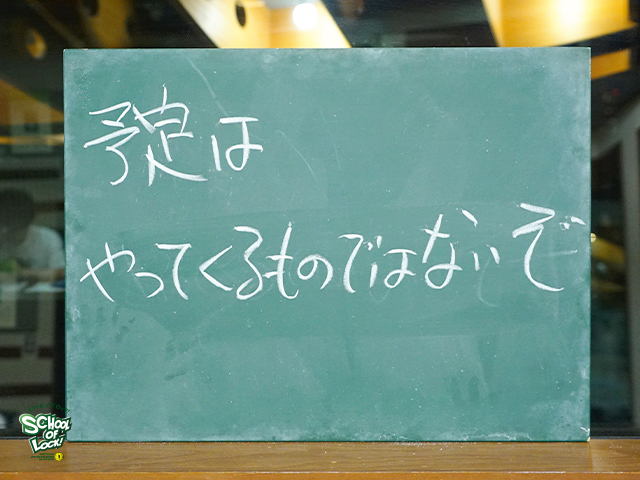 予定は
やってくるものではないぞ
SCHOOL
OF
LOCK!